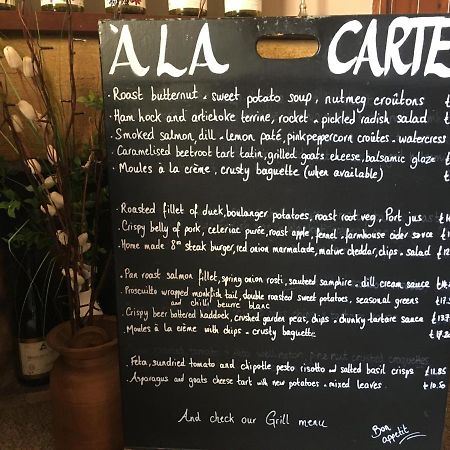 À LA CARTE
· Roast butternut + sweet potato soup, nutmeg croûtons £
· Ham hock and artichoke terrine, rocket + pickled radish salad £
· Smoked salmon, dill + lemon paté, pink peppercorn croûtes + watercress
· Caramelised beetroot tart tatin, grilled goats cheese, balsamic glaze £
· Moules à la crème, crusty baguette (when available) £
· Roasted fillet of duck, boulanger potatoes, roast root veg, Port jus £1
· Crispy belly of pork, celeriac purée, roast apple, fennel + farmhouse cider sauce £1
· Home made 8oz steak burger, red onion marmalade, mature cheddar, chips + salad £12
· Pan roast salmon fillet, spring onion rosti, sauteed samphire + dill cream sauce
· Prosciutto wrapped monkfish tail, double roasted sweet potatoes, seasonal greens £17.
and chilli beurre blanc
· Crispy beer battered haddock, crushed garden peas, chips + chunky tartare sauce £13.7
· Moules à la crème with chips + crusty baguette
· Feta, sundried tomato and chipotle pesto risotto w salted basil crisps £11.85
· Asparagus and goats cheese tart with new potatoes + mixed leaves £10.50
And check our Grill menu
Bon
appetit